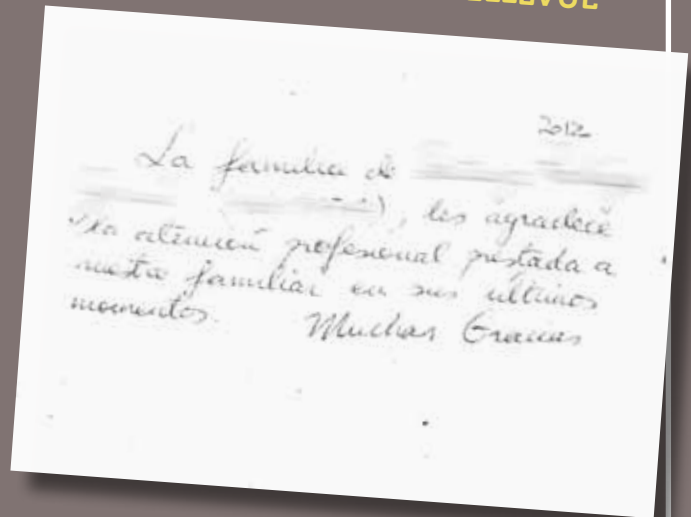 2012
La familia de
), les agradece
la atención profesional prestada a
nuestro familiar en sus últimos
momentos. Muchas Gracias